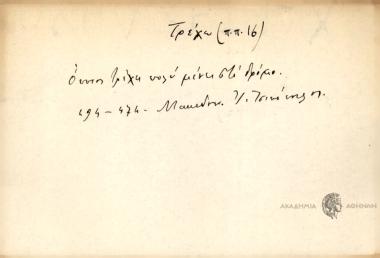 Τρέχω (π.π. 16)
Όποιος τρέχει πολύ μένει στο δρόμο.
494 - 474 - Μακεδον.
ΑΚΑΔΗΜΙΑ ΑΘΗΝΩΝ